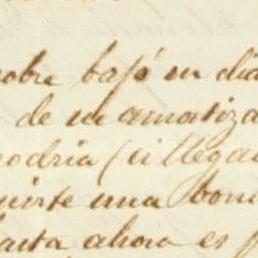 obre bajó un dia
de su amortiza
podria (si llega
uierte una bon
hasta ahora es p